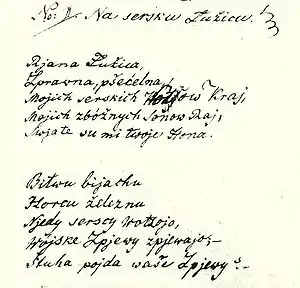 No: 1. Na serbsku Łužicu.
Rjana Łužica,
Zprawna, pšećelna,
Mojich serskich Wótzow Kraj,
Mojich zbóžnych Sonow Raj,
Swjate su mi twoje Hona.
Bitwu bijachu
Horcu železnu
Njedy serscy Wótzojo,
Wójske Zpjewy zpjewajo;
Štuha pójda waše Zpjewy?